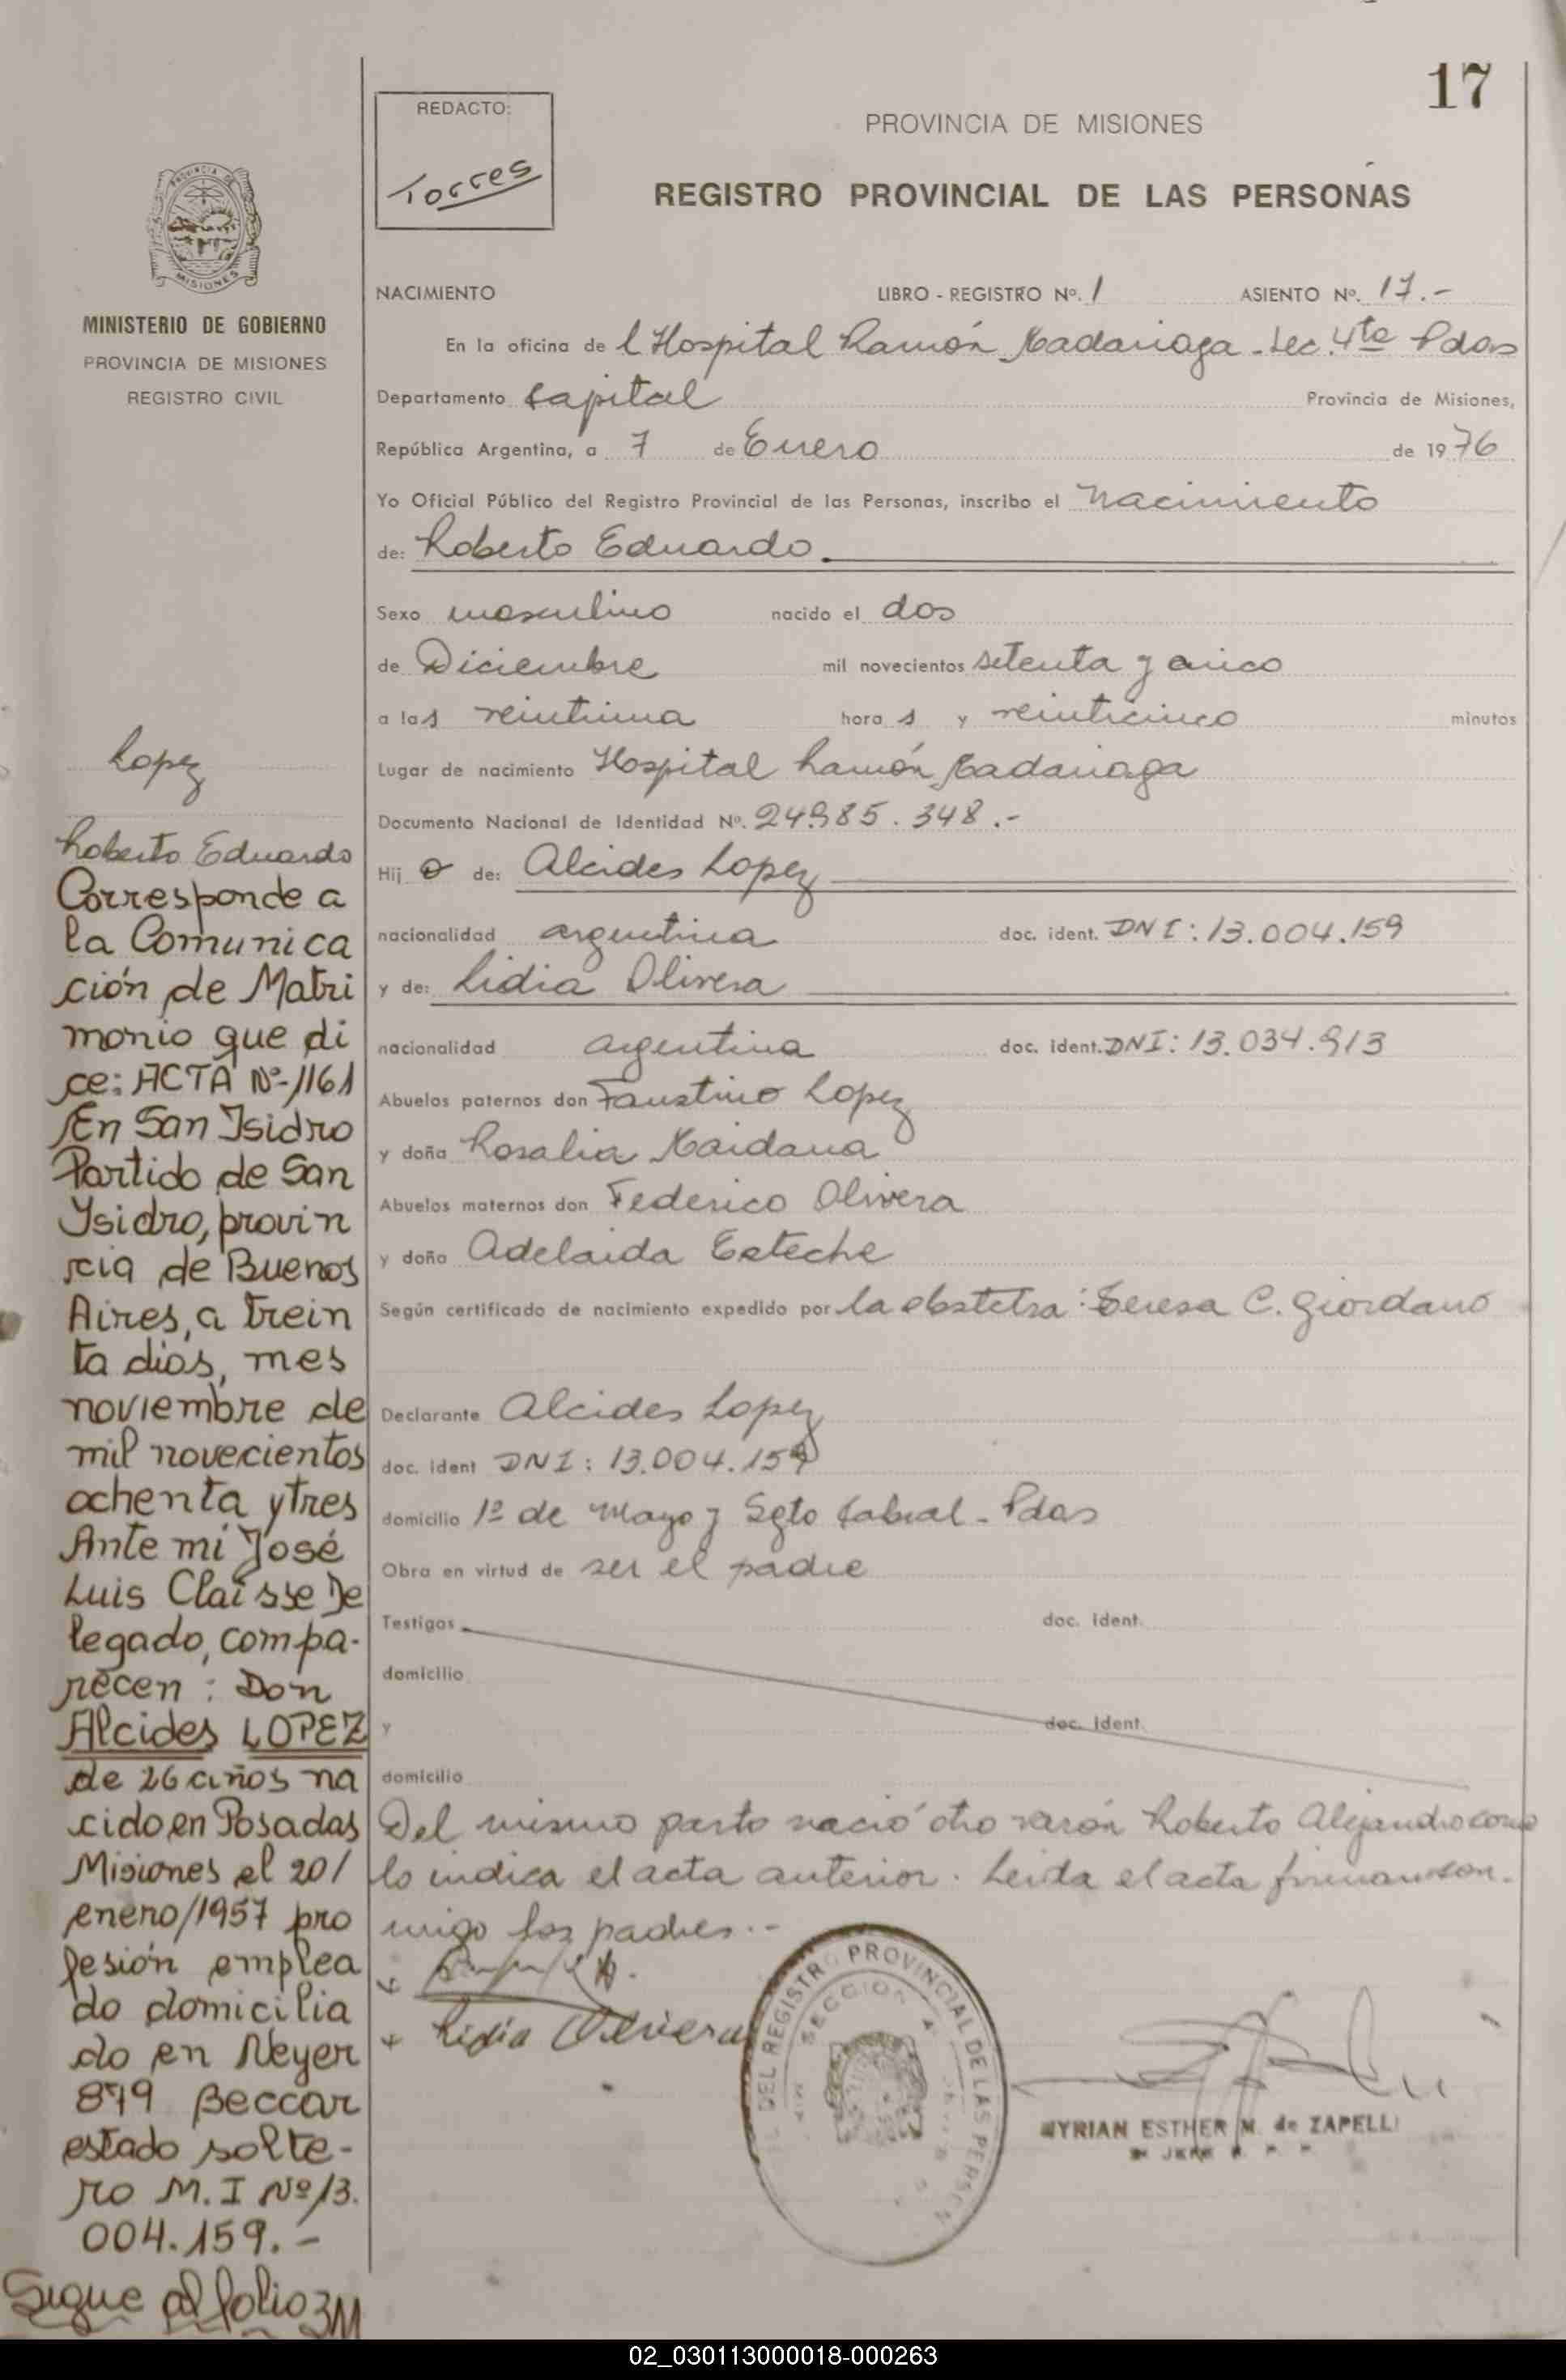 17
REDACTO:
Torres
PROVINCIA DE MISIONES
REGISTRO PROVINCIAL DE LAS PERSONAS
PROVINCIA DE
MISIONES
MINISTERIO DE GOBIERNO
PROVINCIA DE MISIONES
REGISTRO CIVIL
NACIMIENTO LIBRO - REGISTRO Nº. 1 ASIENTO Nº. 17.-
En la oficina de l Hospital Ramón Madariaga - Sec. 4ta Pdas
Departamento Capital Provincia de Misiones,
República Argentina, a 7 de Enero de 1976
Yo Oficial Público del Registro Provincial de las Personas, inscribo el nacimiento
de: Roberto Eduardo
Sexo masculino nacido el dos
de Diciembre mil novecientos setenta y cinco
a las veintiuna hora s y veinticinco minutos
Lugar de nacimiento Hospital Ramón Madariaga
Documento Nacional de Identidad Nº. 24.985.348.-
Hij o de: Alcides Lopez
nacionalidad argentina doc. ident. DNI: 13.004.159
y de: Lidia Olivera
nacionalidad argentina doc. ident. DNI: 13.034.913
Abuelos paternos don Faustino Lopez
y doña Rosalia Maidana
Abuelos maternos don Federico Olivera
y doña Adelaida Esteche
Según certificado de nacimiento expedido por la obstetra: Teresa C. Giordano
Declarante Alcides Lopez
doc. ident DNI: 13.004.159
domicilio 1º de Mayo y Sgto Cabral - Pdas
Obra en virtud de ser el padre
Testigos doc. ident.
domicilio
y doc. ident.
domicilio
Del mismo parto nació otro varón Roberto Alejandro como
lo indica el acta anterior. Leida el acta firman con-
migo los padres.-
Lidia Olivera
DEL REGISTRO PROVINCIAL DE LAS PERSON
SECCION 4
MYRIAN ESTHER M. de ZAPELLI
Lopez
Roberto Eduardo
Corresponde a
la Comunica
ción de Matri
monio que di
ce: ACTA Nº-1161
En San Isidro
Partido de San
Ysidro, provin
cia de Buenos
Aires, a trein
ta dias, mes
noviembre de
mil novecientos
ochenta y tres
Ante mi José
Luis Claisse De
legado, compa-
recen: Don
Alcides LOPEZ
de 26 años na
cido en Posadas
Misiones el 20/
enero/1957 pro
fesión emplea
do domicilia
do en Neyer
879 Beccar
estado solte-
ro M.I Nº 13.
004.159.-
Sigue al folio 311
02_030113000018-000263